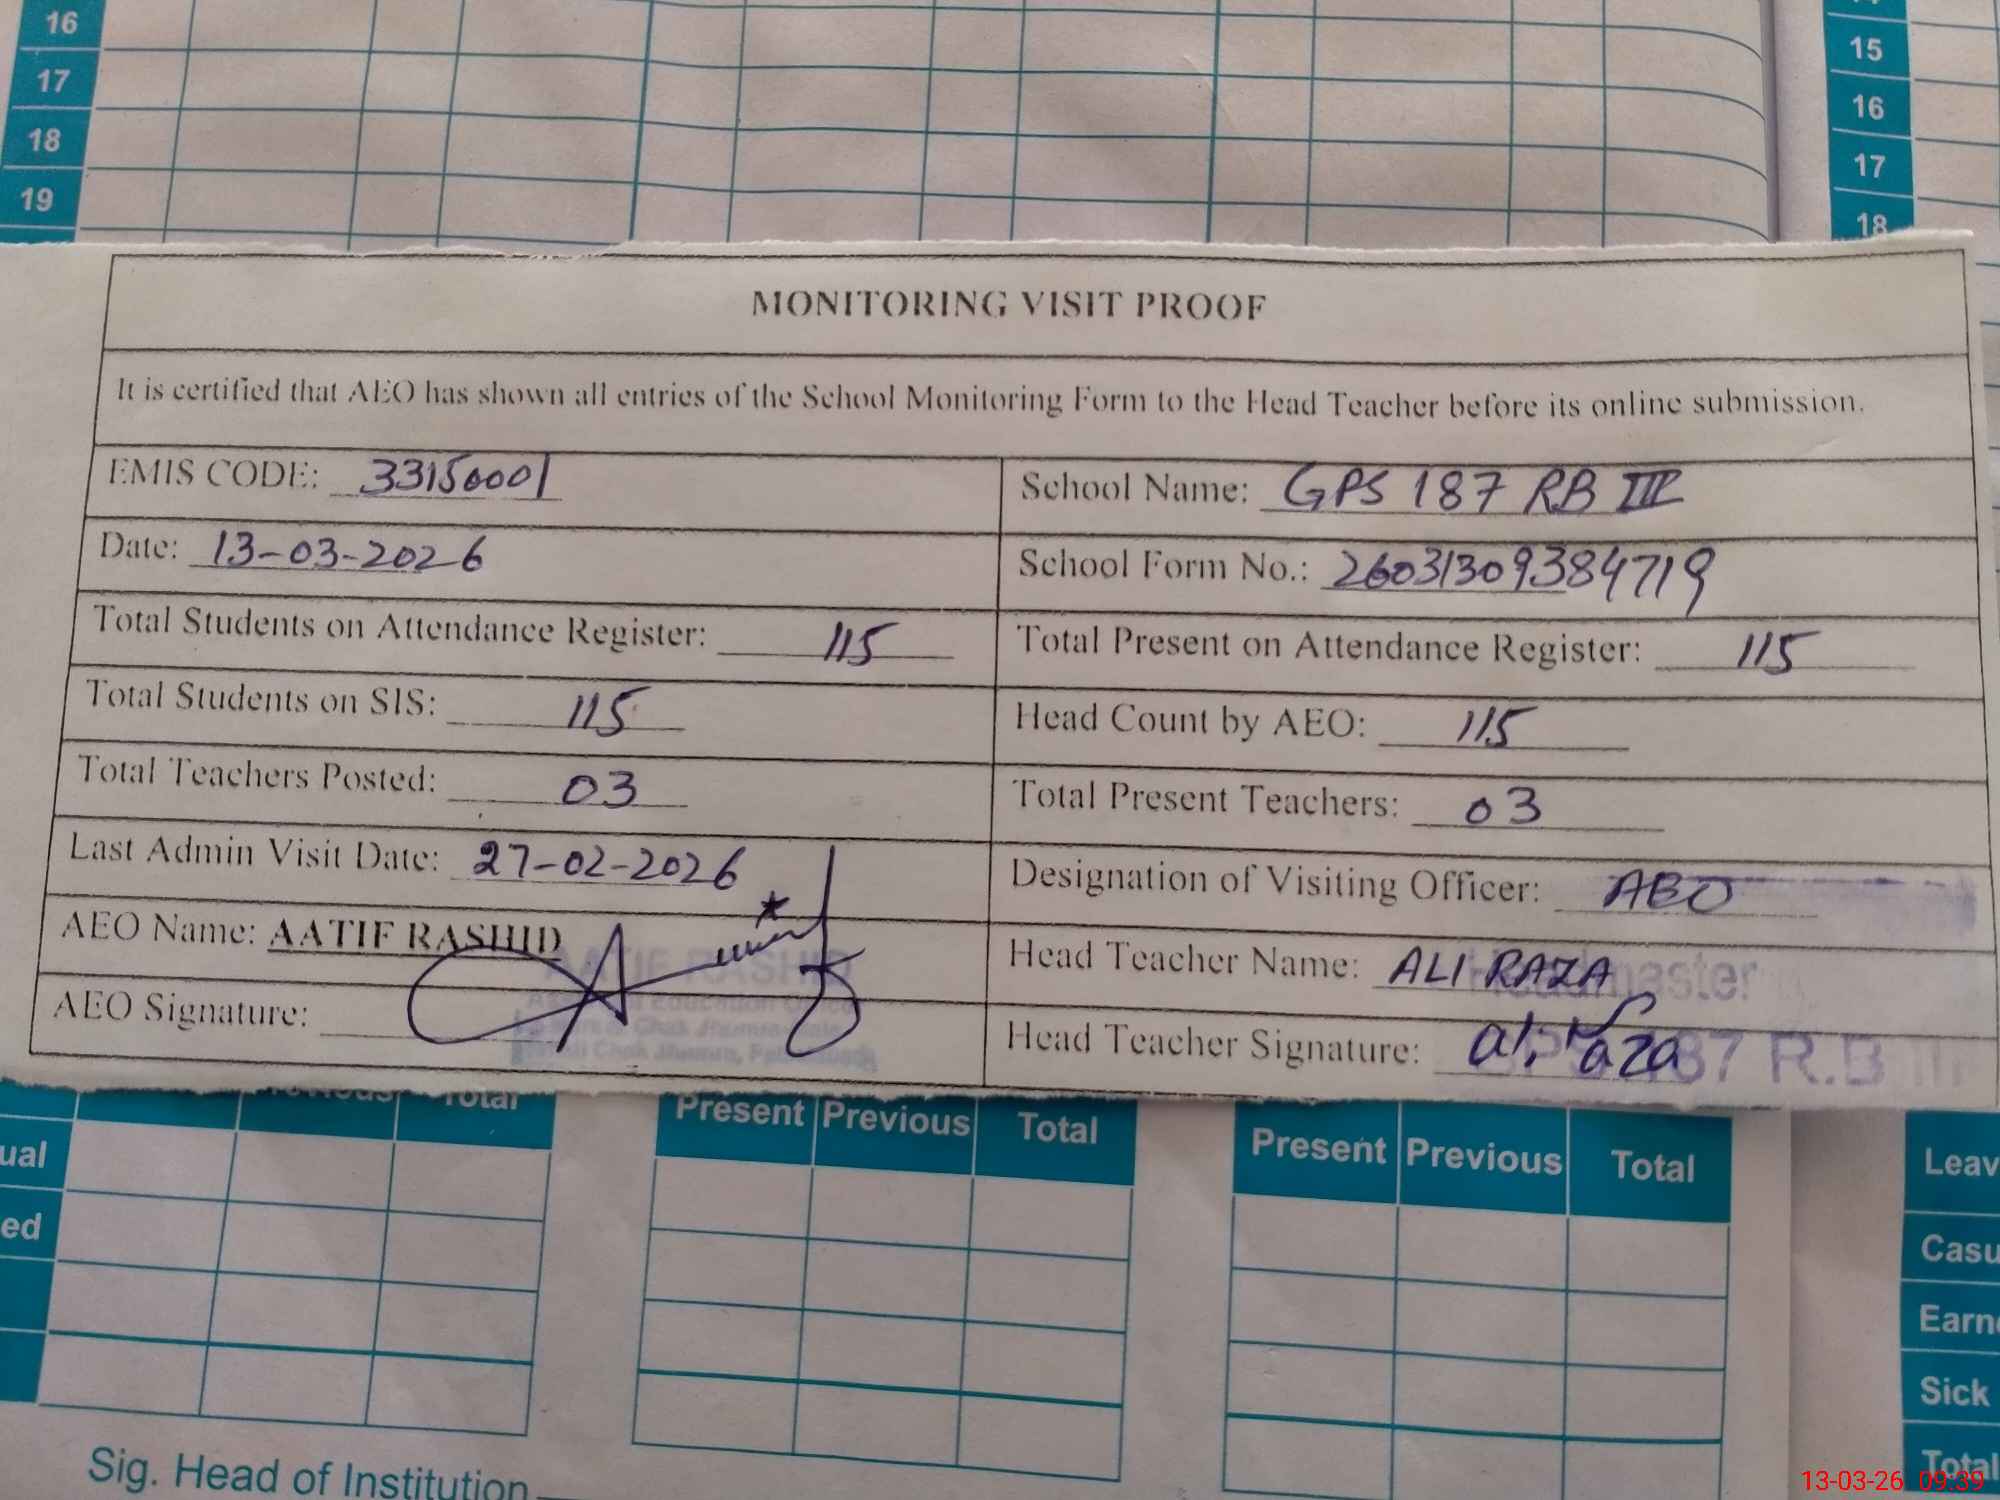 16
17
18
19
15
16
17
18
MONITORING VISIT PROOF
It is certified that AEO has shown all entries of the School Monitoring Form to the Head Teacher before its online submission.
EMIS CODE: 33150001
School Name: GPS 187 RB III
Date: 13-03-2026
School Form No.: 26031309384719
Total Students on Attendance Register: 115
Total Present on Attendance Register: 115
Total Students on SIS: 115
Head Count by AEO: 115
Total Teachers Posted: 03
Total Present Teachers: 03
Last Admin Visit Date: 27-02-2026
Designation of Visiting Officer: AEO
AEO Name: AATIF RASHID
AATIF RASHID
Head Teacher Name: ALI RAZA
Headmaster
AEO Signature:
Head Teacher Signature: ali raza
GPS 187 R.B III
Total
Present Previous Total
Present Previous Total
Leav
ual
ed
Casu
Earne
Sick
Total
Sig. Head of Institution
13-03-26 09:39